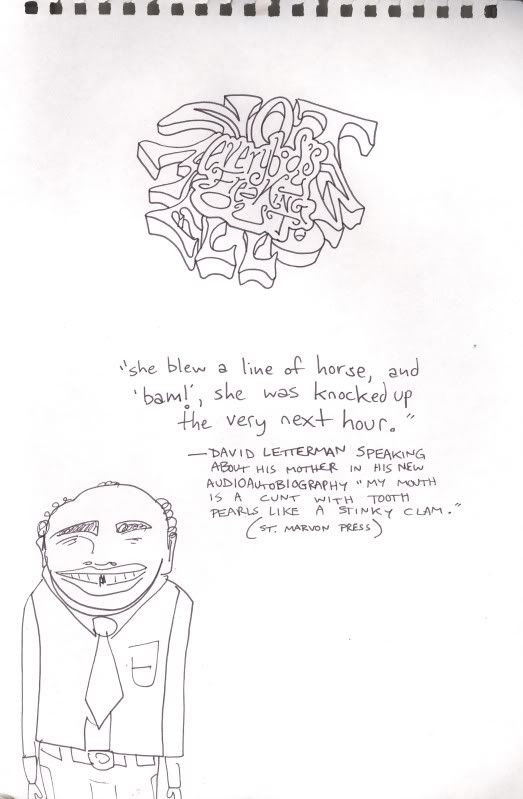 NOT
everybody's
"she blew a line of horse, and
'bam!', she was knocked up
the very next hour."
—DAVID LETTERMAN SPEAKING
ABOUT HIS MOTHER IN HIS NEW
AUDIOAUTOBIOGRAPHY "MY MOUTH
IS A CUNT WITH TOOTH
PEARLS LIKE A STINKY CLAM."
(ST. MARVON PRESS)